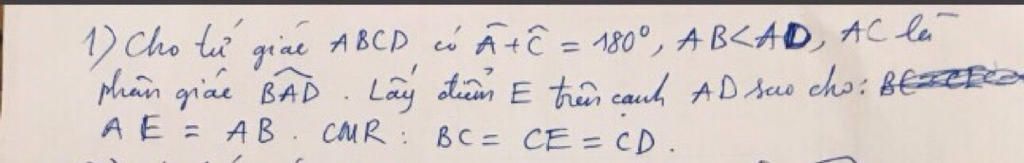 1) Cho tứ giác ABCD có Â + Ĉ = 180°, AB < AD, AC là
phân giác BAD̂. Lấy điểm E trên cạnh AD sao cho:
AE = AB. CMR: BC = CE = CD.